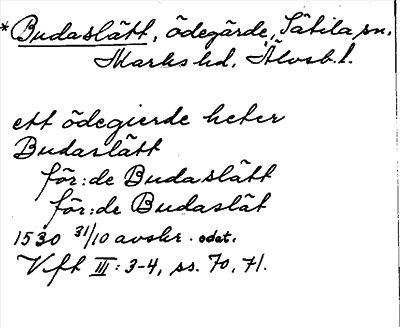 *Budaslätt, ödegärde, Sätila sn.
Marks hd, Älvsb. l.
ett ödegierde heter
Budaslätt
för:de Budaslätt
för:de Budaslät
1530 31/10 avskr. odat.
Vft III: 3-4, ss. 70, 71.